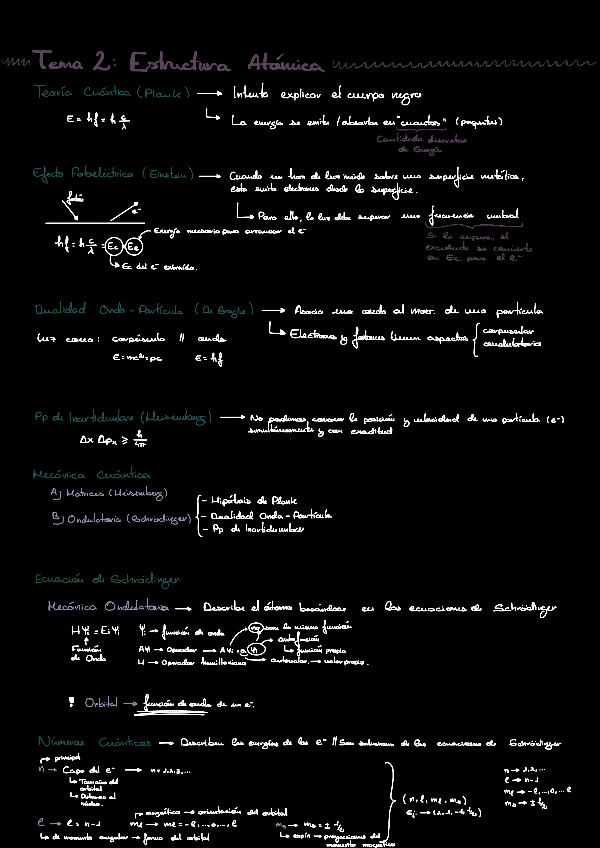 Tema 2: Estructura Atómica
Teoría Cuántica (Planck) → Intenta explicar el cuerpo negro
E = hf = h c/λ
↳ La energía se emite/absorbe en "cuantos" (paquetes)
Cantidades discretas
de Energía
Efecto Fotoeléctrico (Einstein) → Cuando un haz de luz incide sobre una superficie metálica,
esta emite electrones desde la superficie.
fotón
e⁻
↳ Para ello, la luz debe superar una frecuencia umbral
Si la supera, el
excedente se convierte
en Ec para el e⁻
Energía necesaria para arrancar el e⁻
hf = h c/λ =
↳ Ec del e⁻ extraído.
Dualidad Onda-Partícula (De Broglie) → Asocia una onda al mov. de una partícula
↳ Electrones y fotones tienen aspectos { corpuscular
ondulatorio
Luz como: corpúsculo || onda
E=mc²=pc E=hf
Pp de Incertidumbre (Heisenberg) → No podemos conocer la posición y velocidad de una partícula (e⁻)
simultáneamente y con exactitud
Δx Δpₓ ≥ h/4π
Mecánica Cuántica
A) Matrices (Heisenberg)
B) Ondulatoria (Schrödinger)
- Hipótesis de Plank
- Dualidad Onda-Partícula
- Pp de Incertidumbre
Ecuación de Schrödinger
Mecánica Ondulatoria → Describe el átomo basándose en las ecuaciones de Schrödinger
HΨi = EiΨi Ψi → función de onda
son la misma función
autofunción
Función
de Onda
AΨ → Operador → AΨi = aΨi
↳ función propia
H → Operador hamiltoniano
autovalor → valor propio.
! Orbital → función de onda de un e⁻.
Números Cuánticos → Describen las energías de los e⁻ // Son soluciones de las ecuaciones de Schrödinger
↱ principal
n → Capa del e⁻ → n = 1,2,3,...
↳ Tamaño del
orbital
↳ Distancia al
núcleo.
ℓ → ℓ = n-1
↳ de momento angular → forma del orbital
↱ magnético → orientación del orbital
mℓ → mℓ = -ℓ,...,0,...,ℓ
ms → ms = ± 1/2
↳ espín → proyecciones del
momento magnético
(n, ℓ, mℓ, ms)
n → 1,2,...
ℓ → n-1
mℓ → -ℓ,...,0,...ℓ
ms → ± 1/2